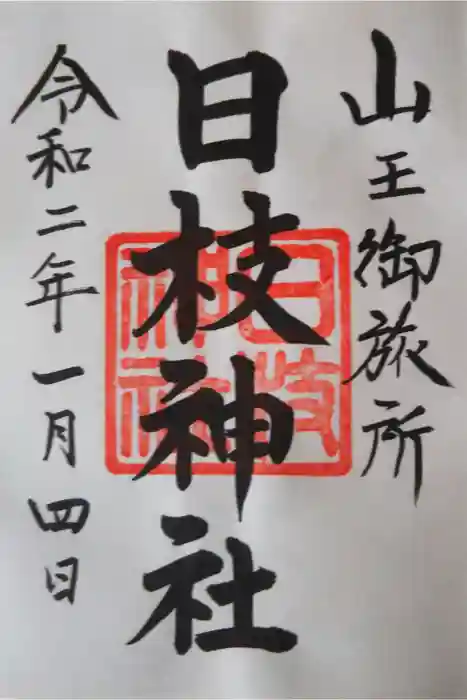 山王御旅所
日枝神社
日枝神社
令和二年一月四日